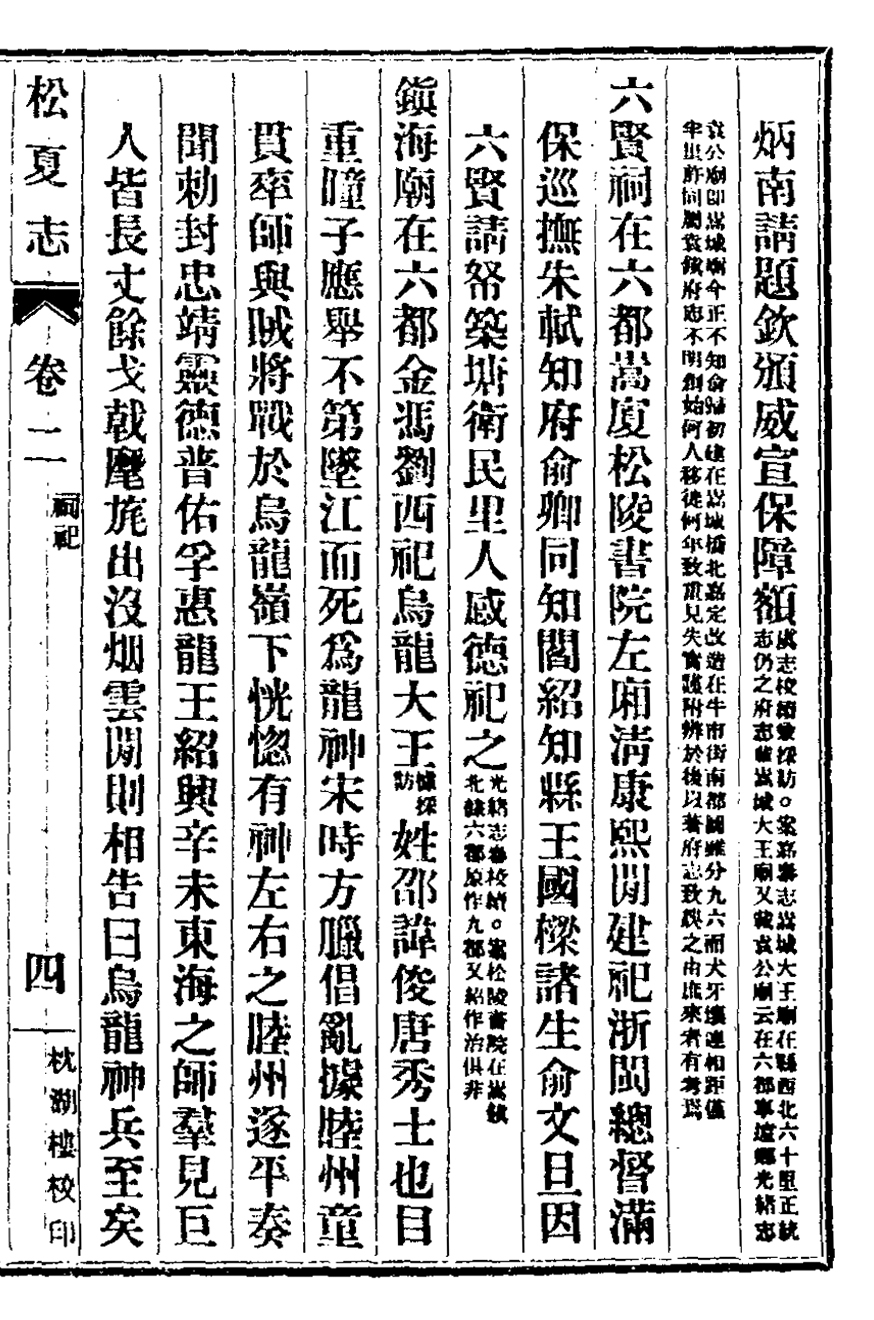 炳南請題欽頒威宣保障額虞志校續兼採訪○案嘉泰志嵩城大王廟在縣西北六十里正統
志仍之府志載嵩城大王廟又載袁公廟云在六都寧遠鄉光緒志
袁公廟卽嵩城廟今正不知俞歸初建在嵩城橋北嘉定改造在牛市街南都圖雖分九六而犬牙壤連相距僅
半里許同屬袁鎮府志不明創始何人移徙何年致重見失實謹附辨於後以著府志致誤之由庶來者有考焉
六賢祠在六都嵩厦松陵書院左廂淸康熙閒建祀浙閩總督滿
保巡撫朱軾知府俞卿同知閻紹知縣王國樑諸生俞文旦因
六賢請帑築塘衛民里人感德祀之光緒志兼校續○案松陵書院在嵩鎮
北鎮六都原作九都又紹作治俱非
鎭海廟在六都金馮劉西祀烏龍大王據採
訪姓邵諱俊唐秀士也目
重瞳子應舉不第墜江而死爲龍神宋時方臘倡亂據睦州童
貫率師與賊將戰於烏龍嶺下恍惚有神左右之睦州遂平奏
聞勅封忠靖靈德普佑孚惠龍王紹興辛未東海之師羣見巨
人皆長丈餘戈戟麾旄出沒烟雲閒則相告曰烏龍神兵至矣
松夏志 卷二 祠祀 四 枕湖樓校印